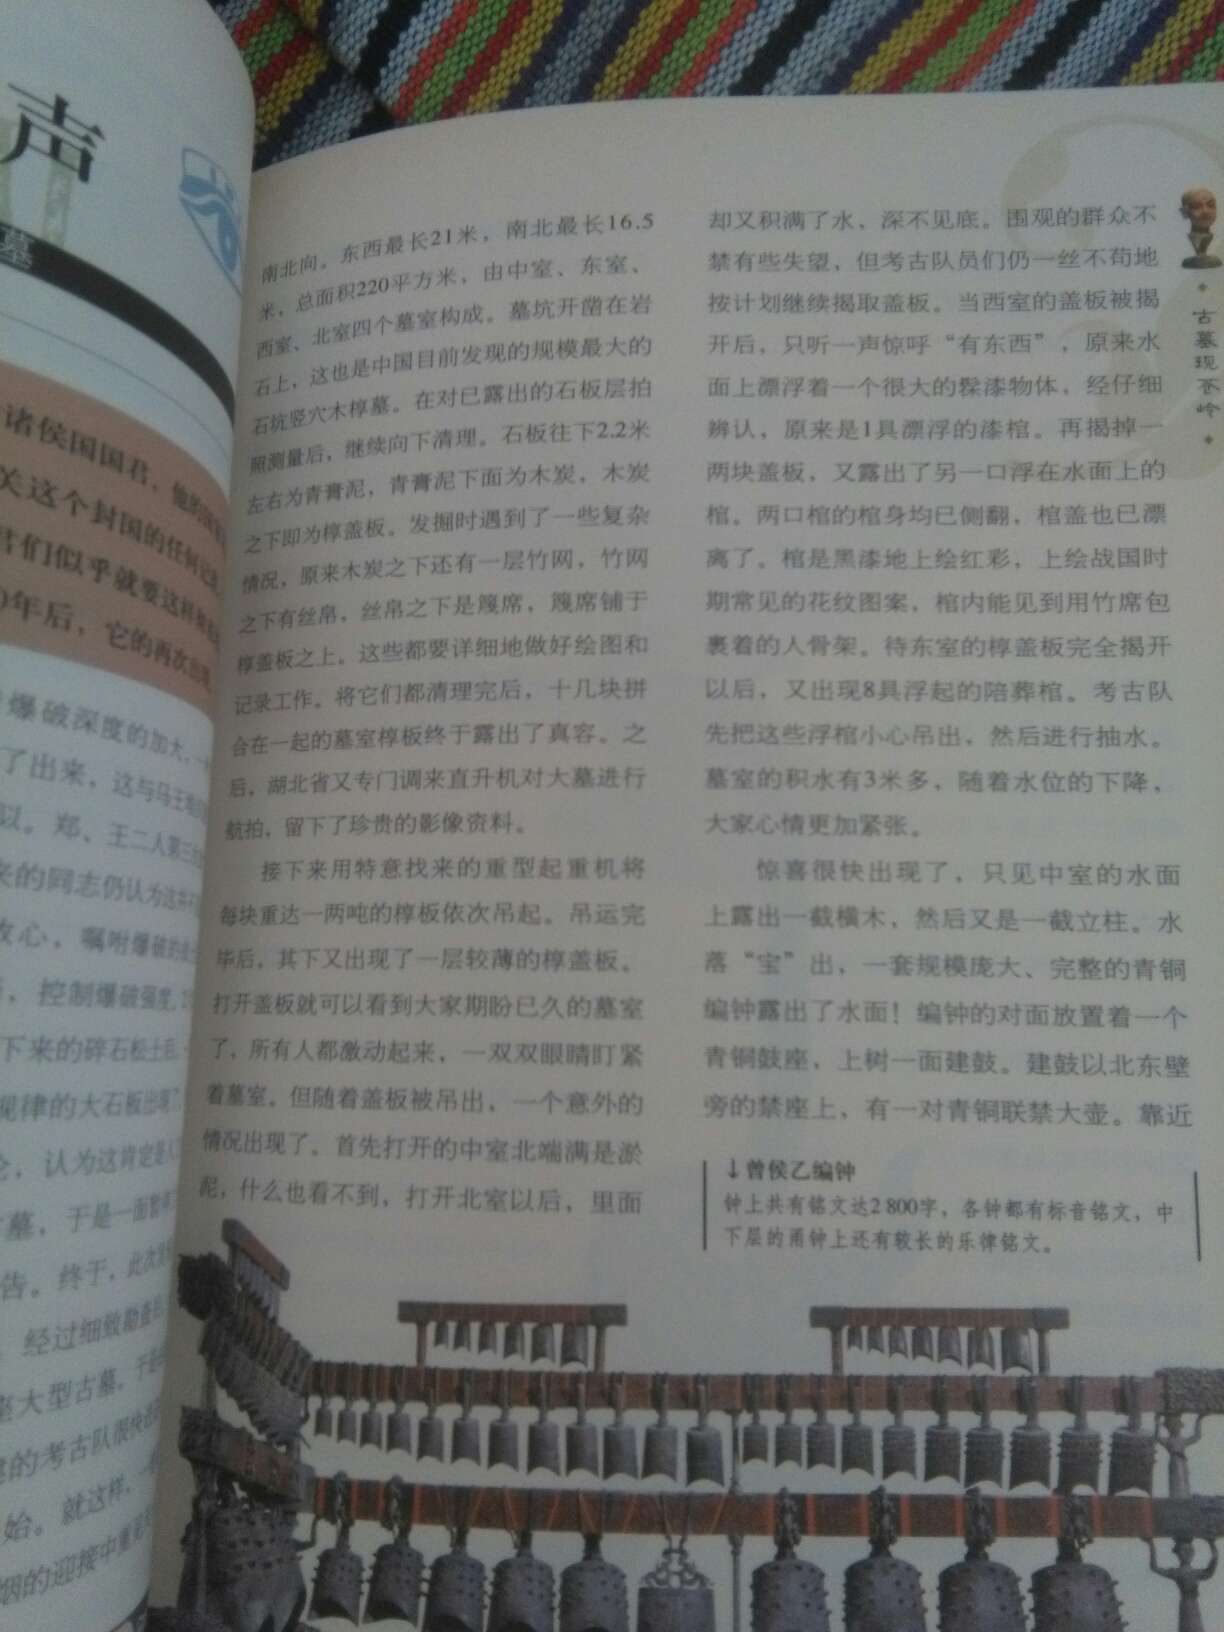 声
墓
诸侯国国君，他的
关这个封国的任何
君们似乎就要这样
0年后，它的再次出现
爆破深度的加大，
了出来，这与马王堆
以。郑、王二人第三
来的同志仍认为这并
放心，嘱咐爆破的
，控制爆破强度，
下来的碎石松土
规律的大石板出现了
论，认为这肯定是人
墓，于是一面暂
告。终于，此次
经过细致勘查
座大型古墓，于是
的考古队很快
始。就这样，
烟的迎接中重
南北向。东西最长21米，南北最长16.5
米，总面积220平方米，由中室、东室、
西室、北室四个墓室构成。墓坑开凿在岩
石上，这也是中国目前发现的规模最大的
石坑竖穴木椁墓。在对已露出的石板层拍
照测量后，继续向下清理。石板往下2.2米
左右为青膏泥，青膏泥下面为木炭，木炭
之下即为椁盖板。发掘时遇到了一些复杂
情况，原来木炭之下还有一层竹网，竹网
之下有丝帛，丝帛之下是篾席，篾席铺于
椁盖板之上。这些都要详细地做好绘图和
记录工作。将它们都清理完后，十几块拼
合在一起的墓室椁板终于露出了真容。之
后，湖北省又专门调来直升机对大墓进行
航拍，留下了珍贵的影像资料。
接下来用特意找来的重型起重机将
每块重达一两吨的椁板依次吊起。吊运完
毕后，其下又出现了一层较薄的椁盖板。
打开盖板就可以看到大家期盼已久的墓室
了，所有人都激动起来，一双双眼睛盯紧
着墓室。但随着盖板被吊出，一个意外的
情况出现了。首先打开的中室北端满是淤
泥，什么也看不到，打开北室以后，里面
却又积满了水，深不见底。围观的群众不
禁有些失望，但考古队员们仍一丝不苟地
按计划继续揭取盖板。当西室的盖板被揭
开后，只听一声惊呼“有东西”，原来水
面上漂浮着一个很大的髹漆物体，经仔细
辨认，原来是1具漂浮的漆棺。再揭掉一
两块盖板，又露出了另一口浮在水面上的
棺。两口棺的棺身均已侧翻，棺盖也已漂
离了。棺是黑漆地上绘红彩，上绘战国时
期常见的花纹图案，棺内能见到用竹席包
裹着的人骨架。待东室的椁盖板完全揭开
以后，又出现8具浮起的陪葬棺。考古队
先把这些浮棺小心吊出，然后进行抽水。
墓室的积水有3米多，随着水位的下降，
大家心情更加紧张。
惊喜很快出现了，只见中室的水面
上露出一截横木，然后又是一截立柱。水
落“宝”出，一套规模庞大、完整的青铜
编钟露出了水面！编钟的对面放置着一个
青铜鼓座，上树一面建鼓。建鼓以北东壁
旁的禁座上，有一对青铜联禁大壶。靠近
↓曾侯乙编钟
钟上共有铭文达2 800字，各钟都有标音铭文，中
下层的甬钟上还有较长的乐律铭文。
古墓现苍岭